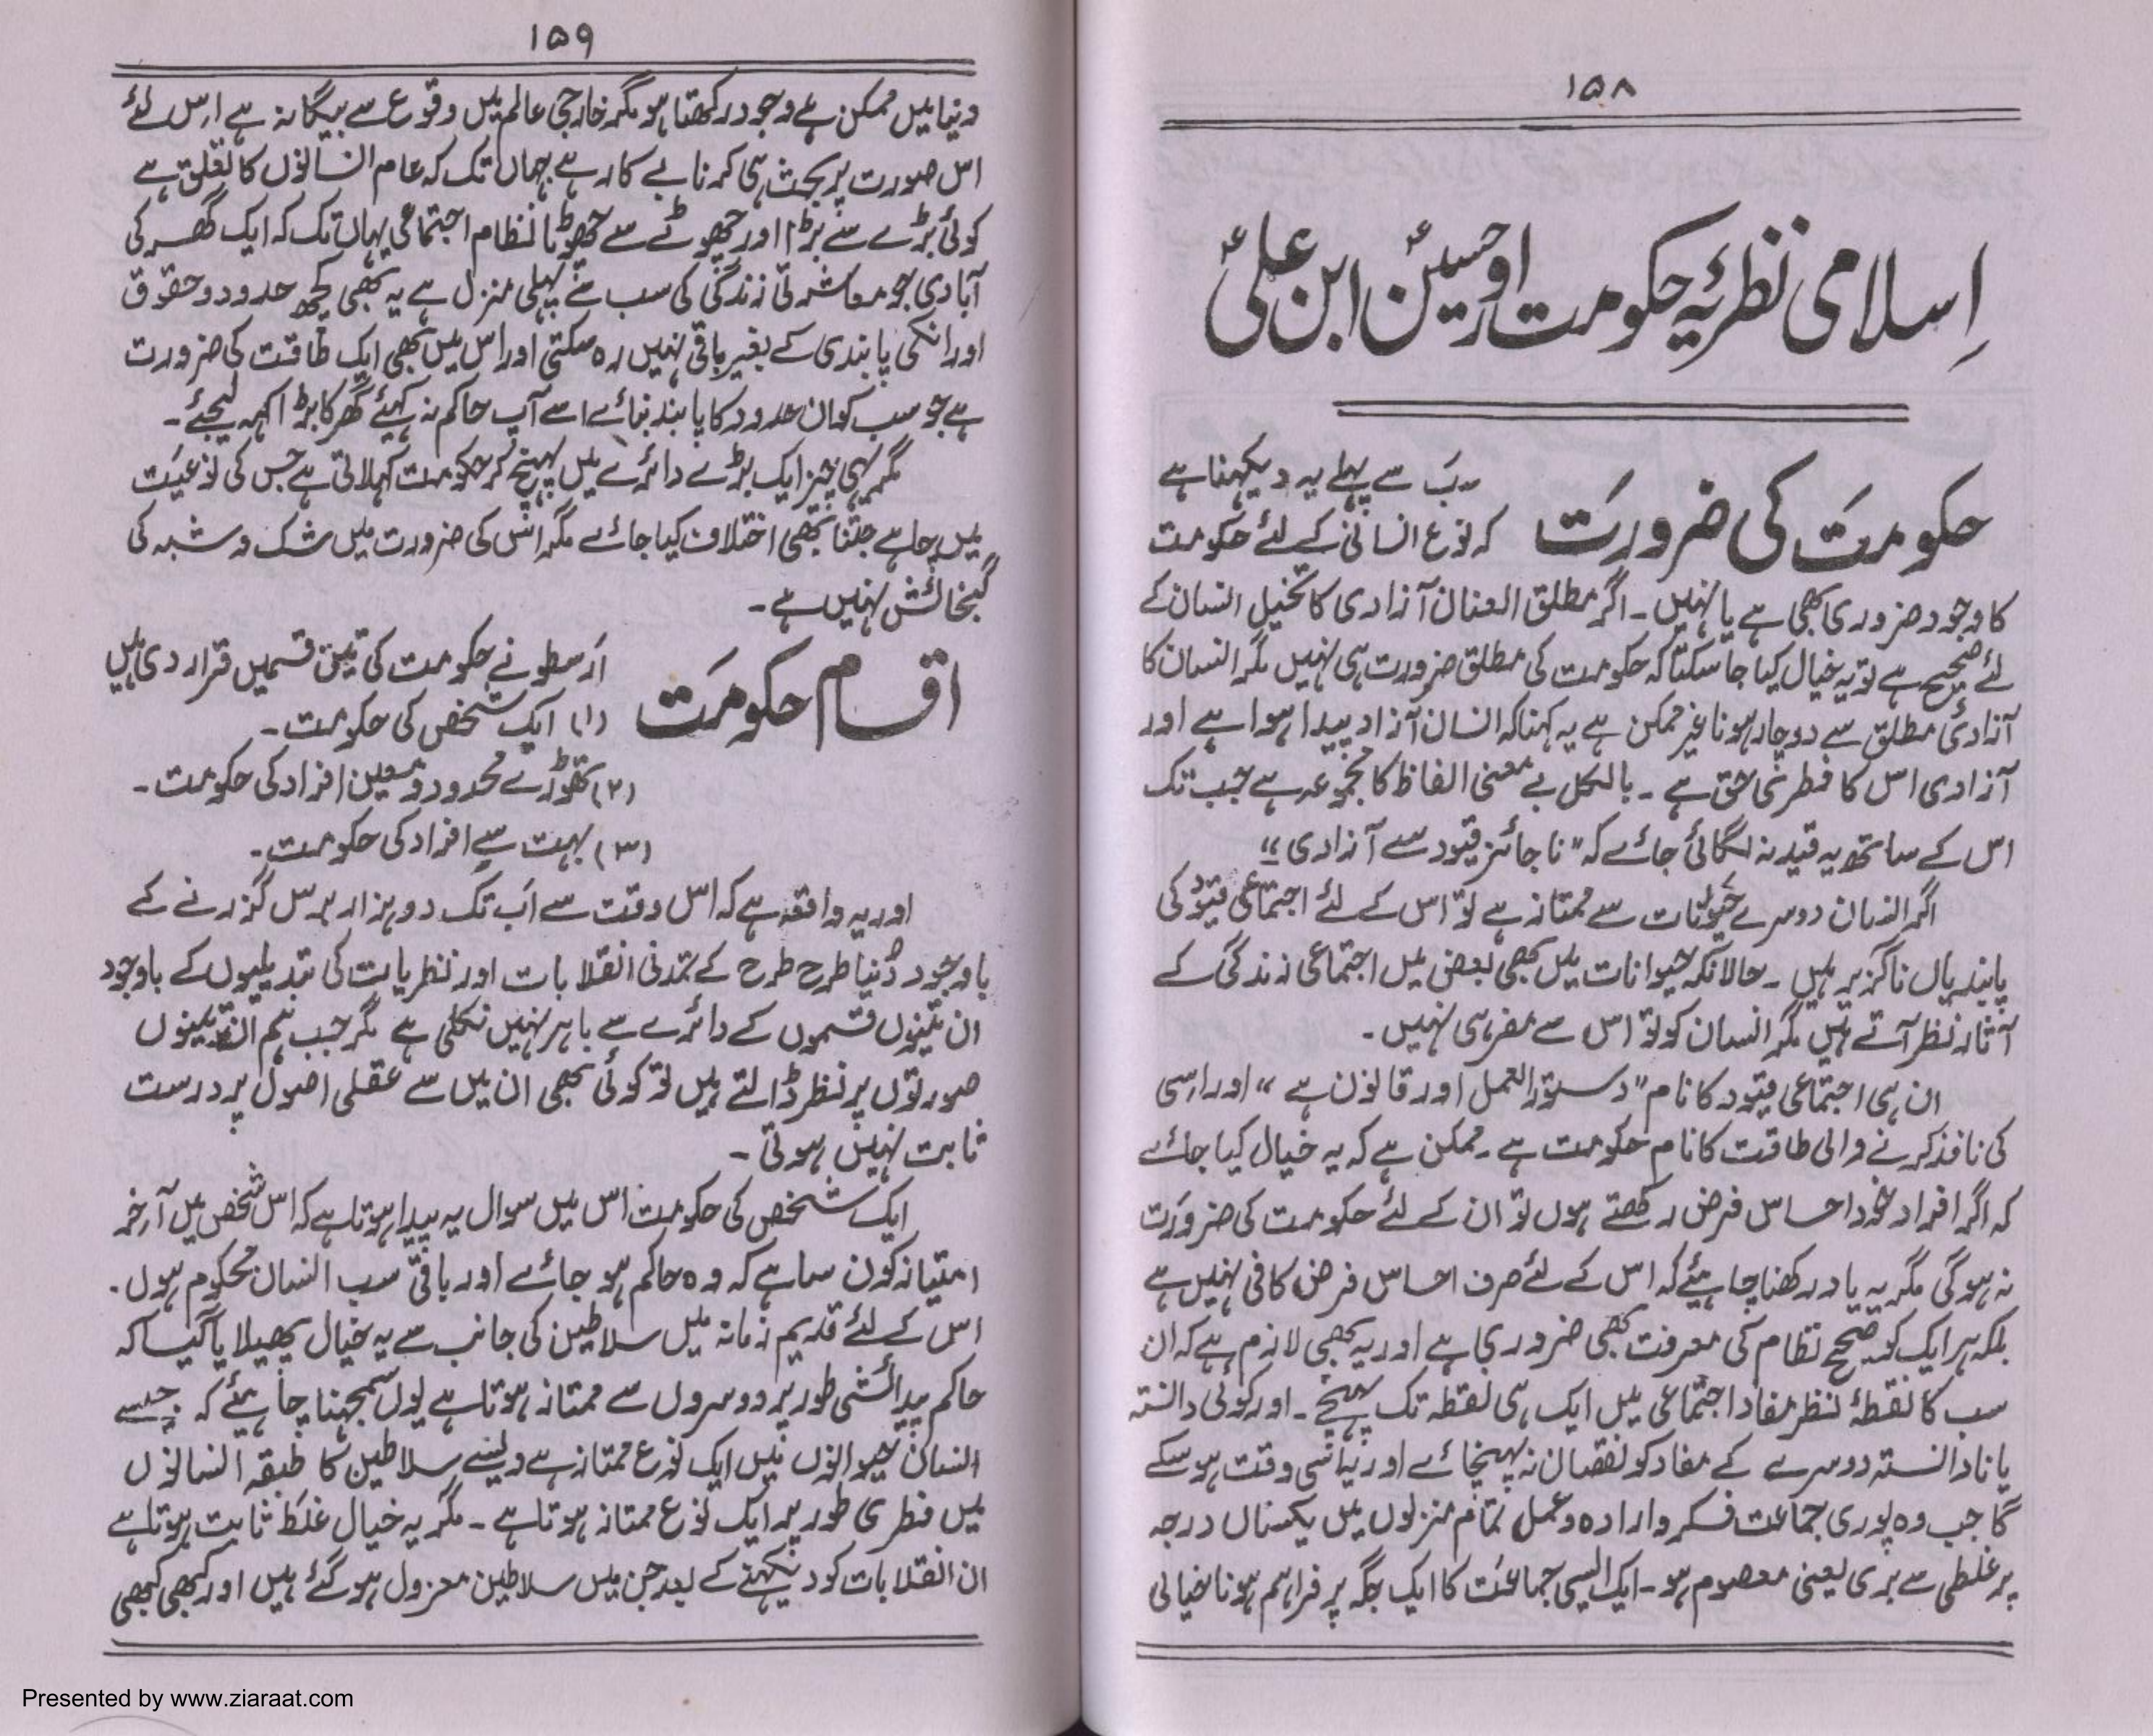 ۱۵۸
اسلامی نظریہ حکومت اور حسینؑ ابن علیؑ
حکومت کی ضرورت
سب سے پہلے یہ دیکھنا ہے
کہ نوع انسانی کے لئے حکومت
کا وجود ضروری بھی ہے یا نہیں۔ اگر مطلق العنان آزادی کا تخیل انسان کے
لئے صحیح ہے تو یہ خیال کیا جا سکتا کہ حکومت کی مطلق ضرورت ہی نہیں مگر انسان کا
آزادیٔ مطلق سے دوچار ہونا غیر ممکن ہے یہ کہنا کہ انسان آزاد پیدا ہوا ہے اور
آزادی اس کا فطری حق ہے۔ بالکل بے معنی الفاظ کا مجموعہ ہے جب تک
اس کے ساتھ یہ قید نہ لگائی جائے کہ "ناجائز قیود سے آزادی"
اگر انسان دوسرے حیوانات سے ممتاز ہے تو اس کے لئے اجتماعی قیود کی
پابندیاں ناگزیر ہیں۔ حالانکہ حیوانات میں بھی بعض میں اجتماعی زندگی کے
آثار نظر آتے ہیں مگر انسان کو تو اس سے مفر ہی نہیں۔
ان ہی اجتماعی قیود کا نام "دستور العمل اور قانون ہے" اور اسی
کی نافذ کرنے والی طاقت کا نام حکومت ہے۔ ممکن ہے کہ یہ خیال کیا جائے
کہ اگر افراد خود احساس فرض رکھتے ہوں تو ان کے لئے حکومت کی ضرورت
نہ ہوگی مگر یہ یاد رکھنا چاہیئے کہ اس کے لئے صرف احساس فرض کافی نہیں ہے
بلکہ ہر ایک کو صحیح نظام کی معرفت بھی ضروری ہے اور یہ بھی لازم ہے کہ ان
سب کا نقطۂ نظر مفاد اجتماعی میں ایک ہی نقطہ تک پہنچے۔ اور کوئی دانستہ
یا نادانستہ دوسرے کے مفاد کو نقصان نہ پہنچائے اور یہ اسی وقت ہو سکے
گا جب وہ پوری جماعت فکر و ارادہ و عمل تمام منزلوں میں یکساں درجہ
پر غلطی سے بری یعنی معصوم ہو۔ ایک ایسی جماعت کا ایک جگہ پر فراہم ہونا خیالی
۱۵۹
دنیا میں ممکن ہے وجود رکھتا ہو مگر خارجی عالم میں وقوع سے بیگانہ ہے اس لئے
اس صورت پر بحث ہی کرنا بے کار ہے جہاں تک کہ عام انسانوں کا تعلق ہے
کوئی بڑے سے بڑا اور چھوٹے سے چھوٹا نظام اجتماعی یہاں تک کہ ایک گھر کی
آبادی جو معاشرتی زندگی کی سب سے پہلی منزل ہے یہ بھی کچھ حدود و حقوق
اور انکی پابندی کے بغیر باقی نہیں رہ سکتی اور اس میں بھی ایک طاقت کی ضرورت
ہے جو سب کو ان حدود کا پابند بنائے اسے آپ حاکم نہ کہیئے گھر کا بڑا کہہ لیجئے۔
مگر یہی چیز ایک بڑے دائرے میں پہنچ کر حکومت کہلاتی ہے جس کی نوعیت
میں چاہے جتنا بھی اختلاف کیا جائے مگر اس کی ضرورت میں شک و شبہ کی
گنجائش نہیں ہے۔
اقسام حکومت
ارسطو نے حکومت کی تین قسمیں قرار دی ہیں
(۱) ایک شخص کی حکومت۔
(۲) تھوڑے محدود و معین افراد کی حکومت۔
(۳) بہت سے افراد کی حکومت۔
اور یہ واقعہ ہے کہ اس وقت سے اب تک دو ہزار برس گزرنے کے
باوجود دنیا طرح طرح کے تمدنی انقلابات اور نظریات کی تبدیلیوں کے باوجود
ان تینوں قسموں کے دائرے سے باہر نہیں نکلی ہے مگر جب ہم ان تینوں
صورتوں پر نظر ڈالتے ہیں تو کوئی بھی ان میں سے عقلی اصول پر درست
ثابت نہیں ہوتی۔
ایک شخص کی حکومت اس میں سوال یہ پیدا ہوتا ہے کہ اس شخص میں آخر
امتیاز کون سا ہے کہ وہ حاکم ہو جائے اور باقی سب انسان محکوم ہوں۔
اس کے لئے قدیم زمانہ میں سلاطین کی جانب سے یہ خیال پھیلایا گیا کہ
حاکم پیدائشی طور پر دوسروں سے ممتاز ہوتا ہے یوں سمجھنا چاہیئے کہ جیسے
انسان حیوانوں میں ایک نوع ممتاز ہے ویسے سلاطین کا طبقہ انسانوں
میں فطری طور پر ایک نوع ممتاز ہوتا ہے۔ مگر یہ خیال غلط ثابت ہوتا ہے
ان انقلابات کو دیکھنے کے بعد جن میں سلاطین معزول ہو گئے ہیں اور کبھی کبھی
Presented by www.ziaraat.com